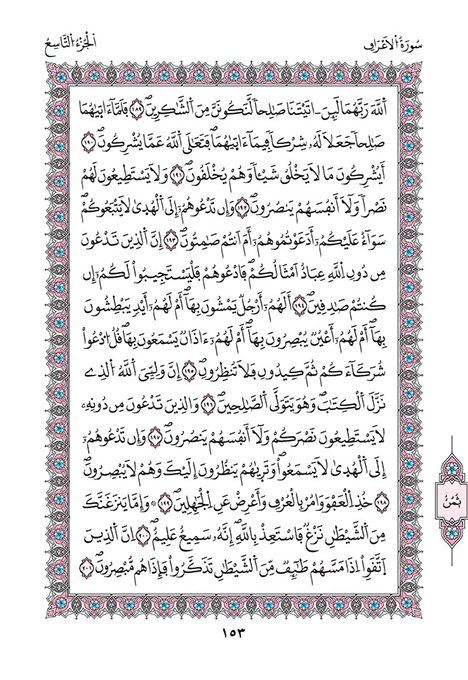 سُورَةُ اُلَاعْرَافِ
اَلْجُزْءُ اُلتَّاسِعُ
اَللَّهَ رَبَّهُمَا لَئِنَ اٰتَيْتَنَا صَٰلِحاٗ لَّنَكُونَنَّ مِنَ اَلشَّٰكِرِينَۖ ١٨٩ فَلَمَّآ ءَاتَيٰهُمَا
صَٰلِحاٗ جَعَلَا لَهُۥ شِرْكاٗ فِيمَآ ءَاتَيٰهُمَاۖ فَتَعَٰلَى اَللَّهُ عَمَّا يُشْرِكُونَۖ ١٩٠
أَيُشْرِكُونَ مَا لَا يَخْلُقُ شَيْـٔاٗ وَهُمْ يُخْلَقُونَۖ ١٩١ وَلَا يَسْتَطِيعُونَ لَهُمْ
نَصْراٗ وَلَآ أَنفُسَهُمْ يَنصُرُونَۖ ١٩٢ وَإِن تَدْعُوهُمُۥٓ إِلَى اَلْهُد۪ىٰ لَا يَتْبَعُوكُمْۖ
سَوَآءٌ عَلَيْكُمُۥٓ أَدَعَوْتُمُوهُمُۥٓ أَمَ اَنتُمْ صَٰمِتُونَۖ ١٩٣ إِنَّ اَلذِينَ تَدْعُونَ
مِن دُونِ اِللَّهِ عِبَادٌ اَمْثَالُكُمْۖ فَادْعُوهُمْ فَلْيَسْتَجِيبُواْ لَكُمُۥٓ إِن
كُنتُمْ صَٰدِقِينَۖ ١٩٤ أَلَهُمُۥٓ أَرْجُلٞ يَمْشُونَ بِهَآۖ أَمْ لَهُمُۥٓ أَيْدٖ يَبْطِشُونَ
بِهَآۖ أَمْ لَهُمُۥٓ أَعْيُنٞ يُبْصِرُونَ بِهَآۖ أَمْ لَهُمُۥٓ ءَاذَانٞ يَسْمَعُونَ بِهَاۖ قُلُ اُدْعُواْ
شُرَكَآءَكُمْ ثُمَّ كِيدُونِ فَلَا تُنظِرُونِۖ ١٩٥ إِنَّ وَلِـِّۧيَ اَللَّهُ اُلذِے
نَزَّلَ اَلْكِتَٰبَۖ وَهُوَ يَتَوَلَّى اَلصَّٰلِحِينَۖ ١٩٦ وَالذِينَ تَدْعُونَ مِن دُونِهِۦ
لَا يَسْتَطِيعُونَ نَصْرَكُمْ وَلَآ أَنفُسَهُمْ يَنصُرُونَۖ ١٩٧ وَإِن تَدْعُوهُمُۥٓ
إِلَى اَلْهُد۪ىٰ لَا يَسْمَعُواْۖ وَتَر۪يٰهُمْ يَنظُرُونَ إِلَيْكَ وَهُمْ لَا يُبْصِرُونَۖ
١٩٨ خُذِ اِلْعَفْوَ وَامُرْ بِالْعُرْفِ وَأَعْرِضْ عَنِ اِلْجَٰهِلِينَۖ ١٩٩ وَإِمَّا يَنزَغَنَّكَ
مِنَ اَلشَّيْطَٰنِ نَزْغٞ فَاسْتَعِذْ بِاللَّهِۖ إِنَّهُۥ سَمِيعٌ عَلِيمٌۖ ٢٠٠ اِنَّ اَلذِينَ
اَتَّقَوِاْ اِذَا مَسَّهُمْ طَٰٓئِفٞ مِّنَ اَلشَّيْطَٰنِ تَذَكَّرُواْ فَإِذَا هُم مُّبْصِرُونَۖ ٢٠١
ثُمُنُ
١٥٣